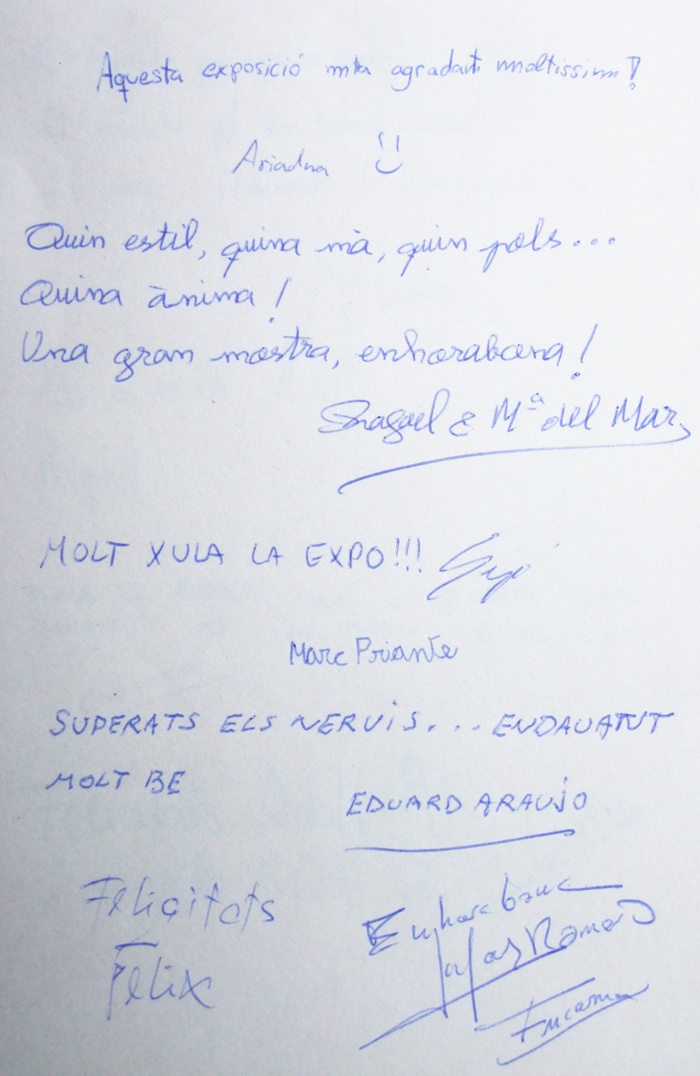 Aquesta exposició m'ha agradat moltíssim!
Ariadna
Quin estil, quina mà, quin pols...
Quina ànima!
Una gran mostra, enhorabona!
& Mª del Mar
MOLT XULA LA EXPO!!!
Marc Priante
SUPERATS ELS NERVIS... ENDAVANT
MOLT BE
EDUARD ARAUJO
Felicitats
Fèlix
Enhorabona
Romero
Encarna